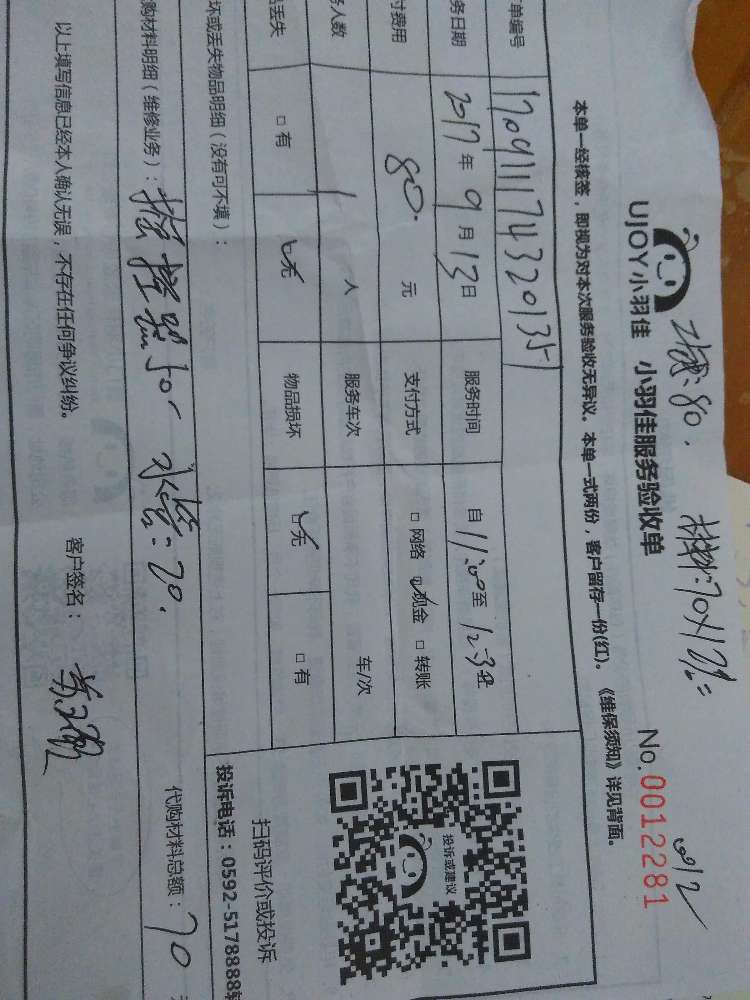 工费:80. 材料:70
UJOY小羽佳 小羽佳服务验收单 No.0012281
本单一经核签，即视为对本次服务验收无异议。本单一式两份，客户留存一份(红)。《维保须知》详见背面。
单编号
务日期 2017年9月13日 服务时间 自11:00至12:30
付费用 80.元 支付方式 □网络 ☑现金 □转账
务人数 1人 服务车次 车/次
品丢失 □有 ☑无 物品损坏 ☑无 □有
投诉或建议
扫码评价或投诉
投诉电话：0592-5178888转
坏或丢失物品明细（没有可不填）：
购材料明细（维修业务）： 50 水管:20.
代购材料总额：70
以上填写信息已经本人确认无误，不存在任何争议纠纷。 客户签名：